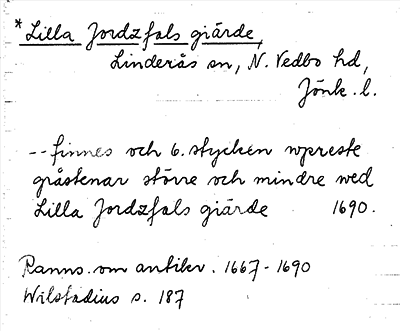 *Lilla Jordzfals giärde,
Linderås sn, N. Vedbo hd,
Jönk. l.
-- finnes och 6. stycken wpreste
gråstenar större och mindre wed
Lilla Jordzfals giärde 1690.
Ranns. om antikv. 1667-1690
Wilstadius s. 187